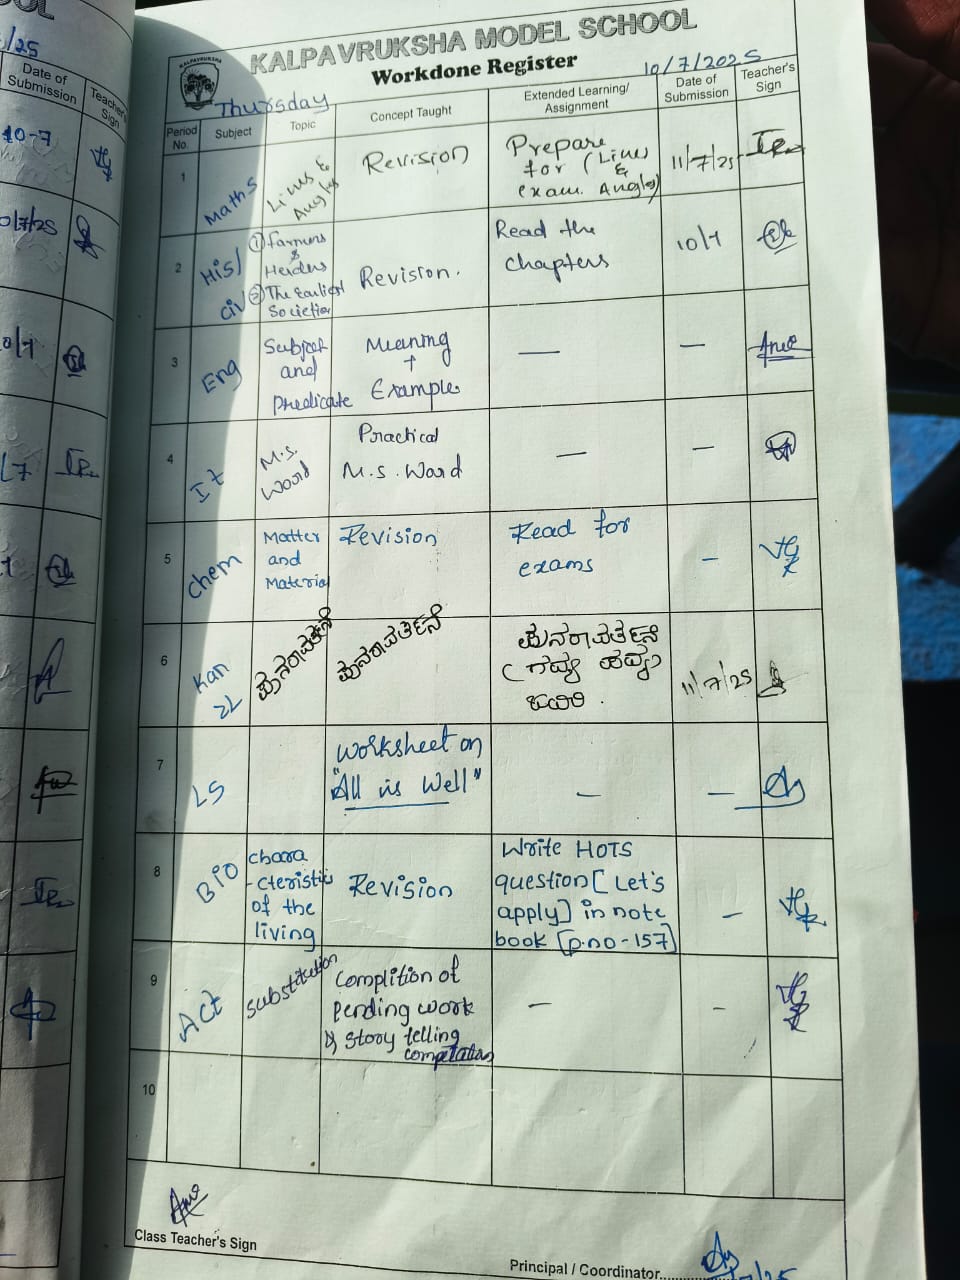 /25
Date of
Submission
Teacher's
Sign
10-7
0/7/25
KALPAVRUKSHA MODEL SCHOOL
Workdone Register
KALPAVRUKSHA
Thursday
10/7/2025
Period
No.
Subject
Topic
Concept Taught
Extended Learning/
Assignment
Date of
Submission
Teacher's
Sign
1
Maths
Lines &
Angles
Revision
Prepare
for (Lines
&
exam. Angles)
11/7/25
2
His/
civ
① Farmers
&
Herders
② The Earliest
Societies
Revision.
Read the
chapters
10/7
3
Eng
Subject
and
Predicate
Meaning
+
Example
—
—
4
It
M.S.
Word
Practical
M.S. Word
—
—
5
Chem
Matter
and
Material
Revision
Read for
exams
–
6
Kan
2L
ಪುನರಾವರ್ತನೆ
ಪುನರಾವರ್ತನೆ
ಪುನರಾವರ್ತನೆ
(ಗದ್ಯ ಪದ್ಯ)
11/7/25
7
LS
Worksheet on
"All is Well"
–
–
8
Bio
chara
-cteristic
of the
living
Revision
Write HOTS
question [Let's
apply] in note
book [p.no-157]
–
9
Act
Substitution
Complition of
pending work
& Story telling
compitation
–
–
10
Class Teacher's Sign
Principal / Coordinator